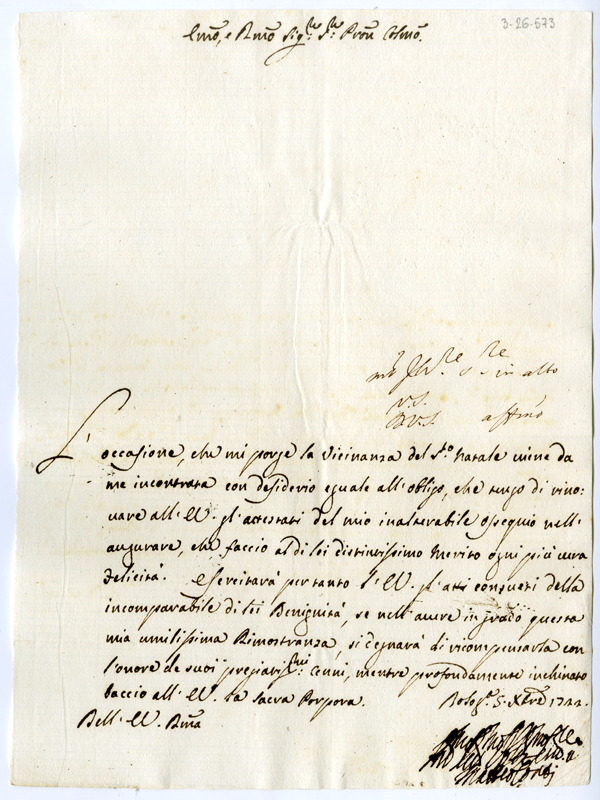 3-26-573
Em̃o, e Rm̃o Sig.re S.re Pron Colm̃o.
in alto
V.S.
affm̃o
L'occasione, che mi porge la Vicinanza del S.to Natale viene da
me incontrata con desiderio eguale all'obligo, che tengo di rino:
vare all'EV. gl'attestati del mio inalterabile ossequio nell'
augurare, che faccio al di lei distintissimo Merito ogni più vera
felicità. Esercitarà per tanto l'EV. gl'atti consueti della
incomparabile di lei Benignità, se nell'avere in grado questa
mia umilissima Rimostranza, si degnarà di ricompensarla con
l'onore de suoi pregiatis.mi Cenni, mentre profondamente inchinato
baccio all'EV. la Sacra Porpora. Bolog.a 5. Xbre 1722.
Dell'EV. Rm̃a